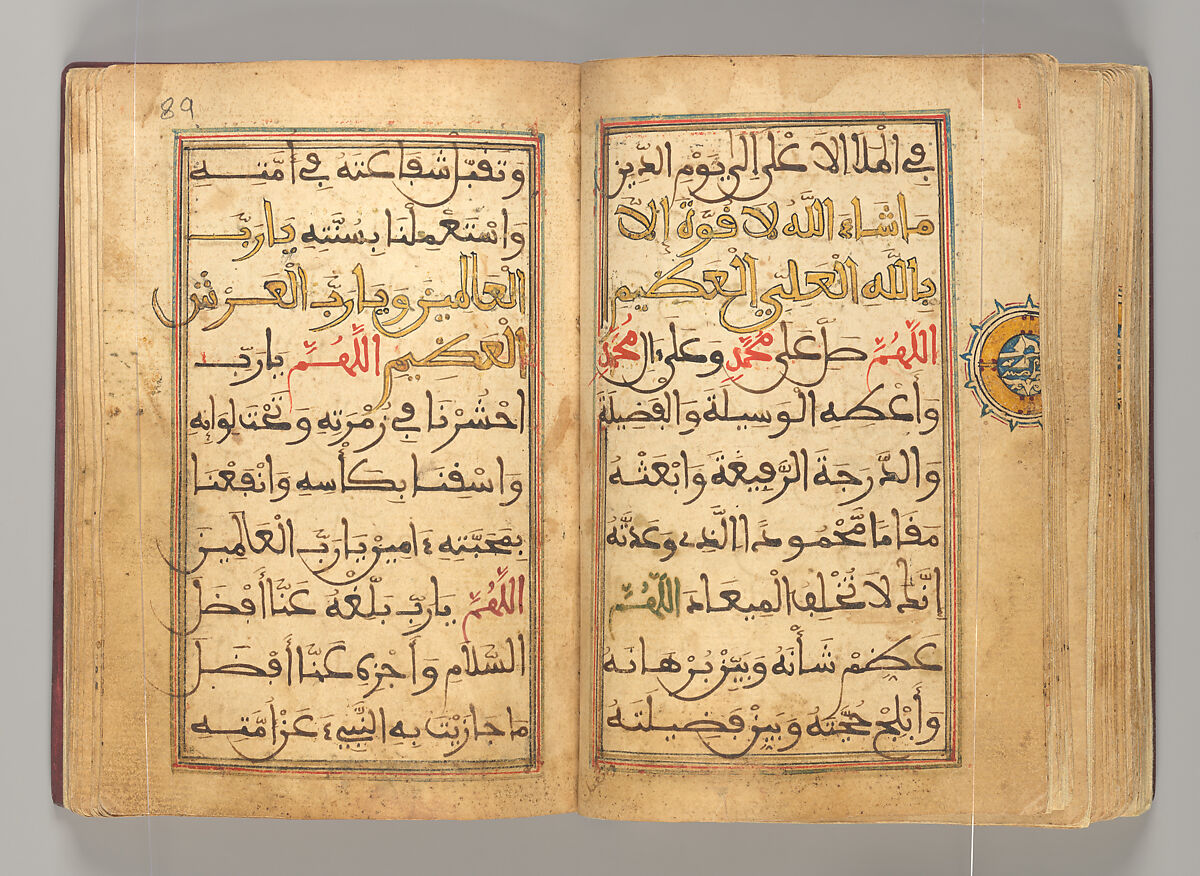 في الملإ الاعلى الى يوم الدين
ما شاء الله لا قوة إلا
بالله العلي العظيم
اللهم صل على محمد وعلى ءال محمد
وأعطه الوسيلة والفضيلة
والدرجة الرفيعة وابعثه
مقاما محمودا الذي وعدته
إنك لا تخلف الميعاد اللهم
عظم شأنه وبين برهانه
وأبلج حجته وبين فضيلته
89
وتقبل شفاعته في أمته
واستعملنا بسنته يا رب
العالمين ويا رب العرش
العظيم اللهم يا رب
احشرنا في زمرته وتحت لوائه
واسقنا بكأسه وانفعنا
بمحبته ءامين يا رب العالمين
اللهم يا رب بلغه عنا أفضل
السلام وأجزه عنا أفضل
ما جازيت به النبيء عن أمته